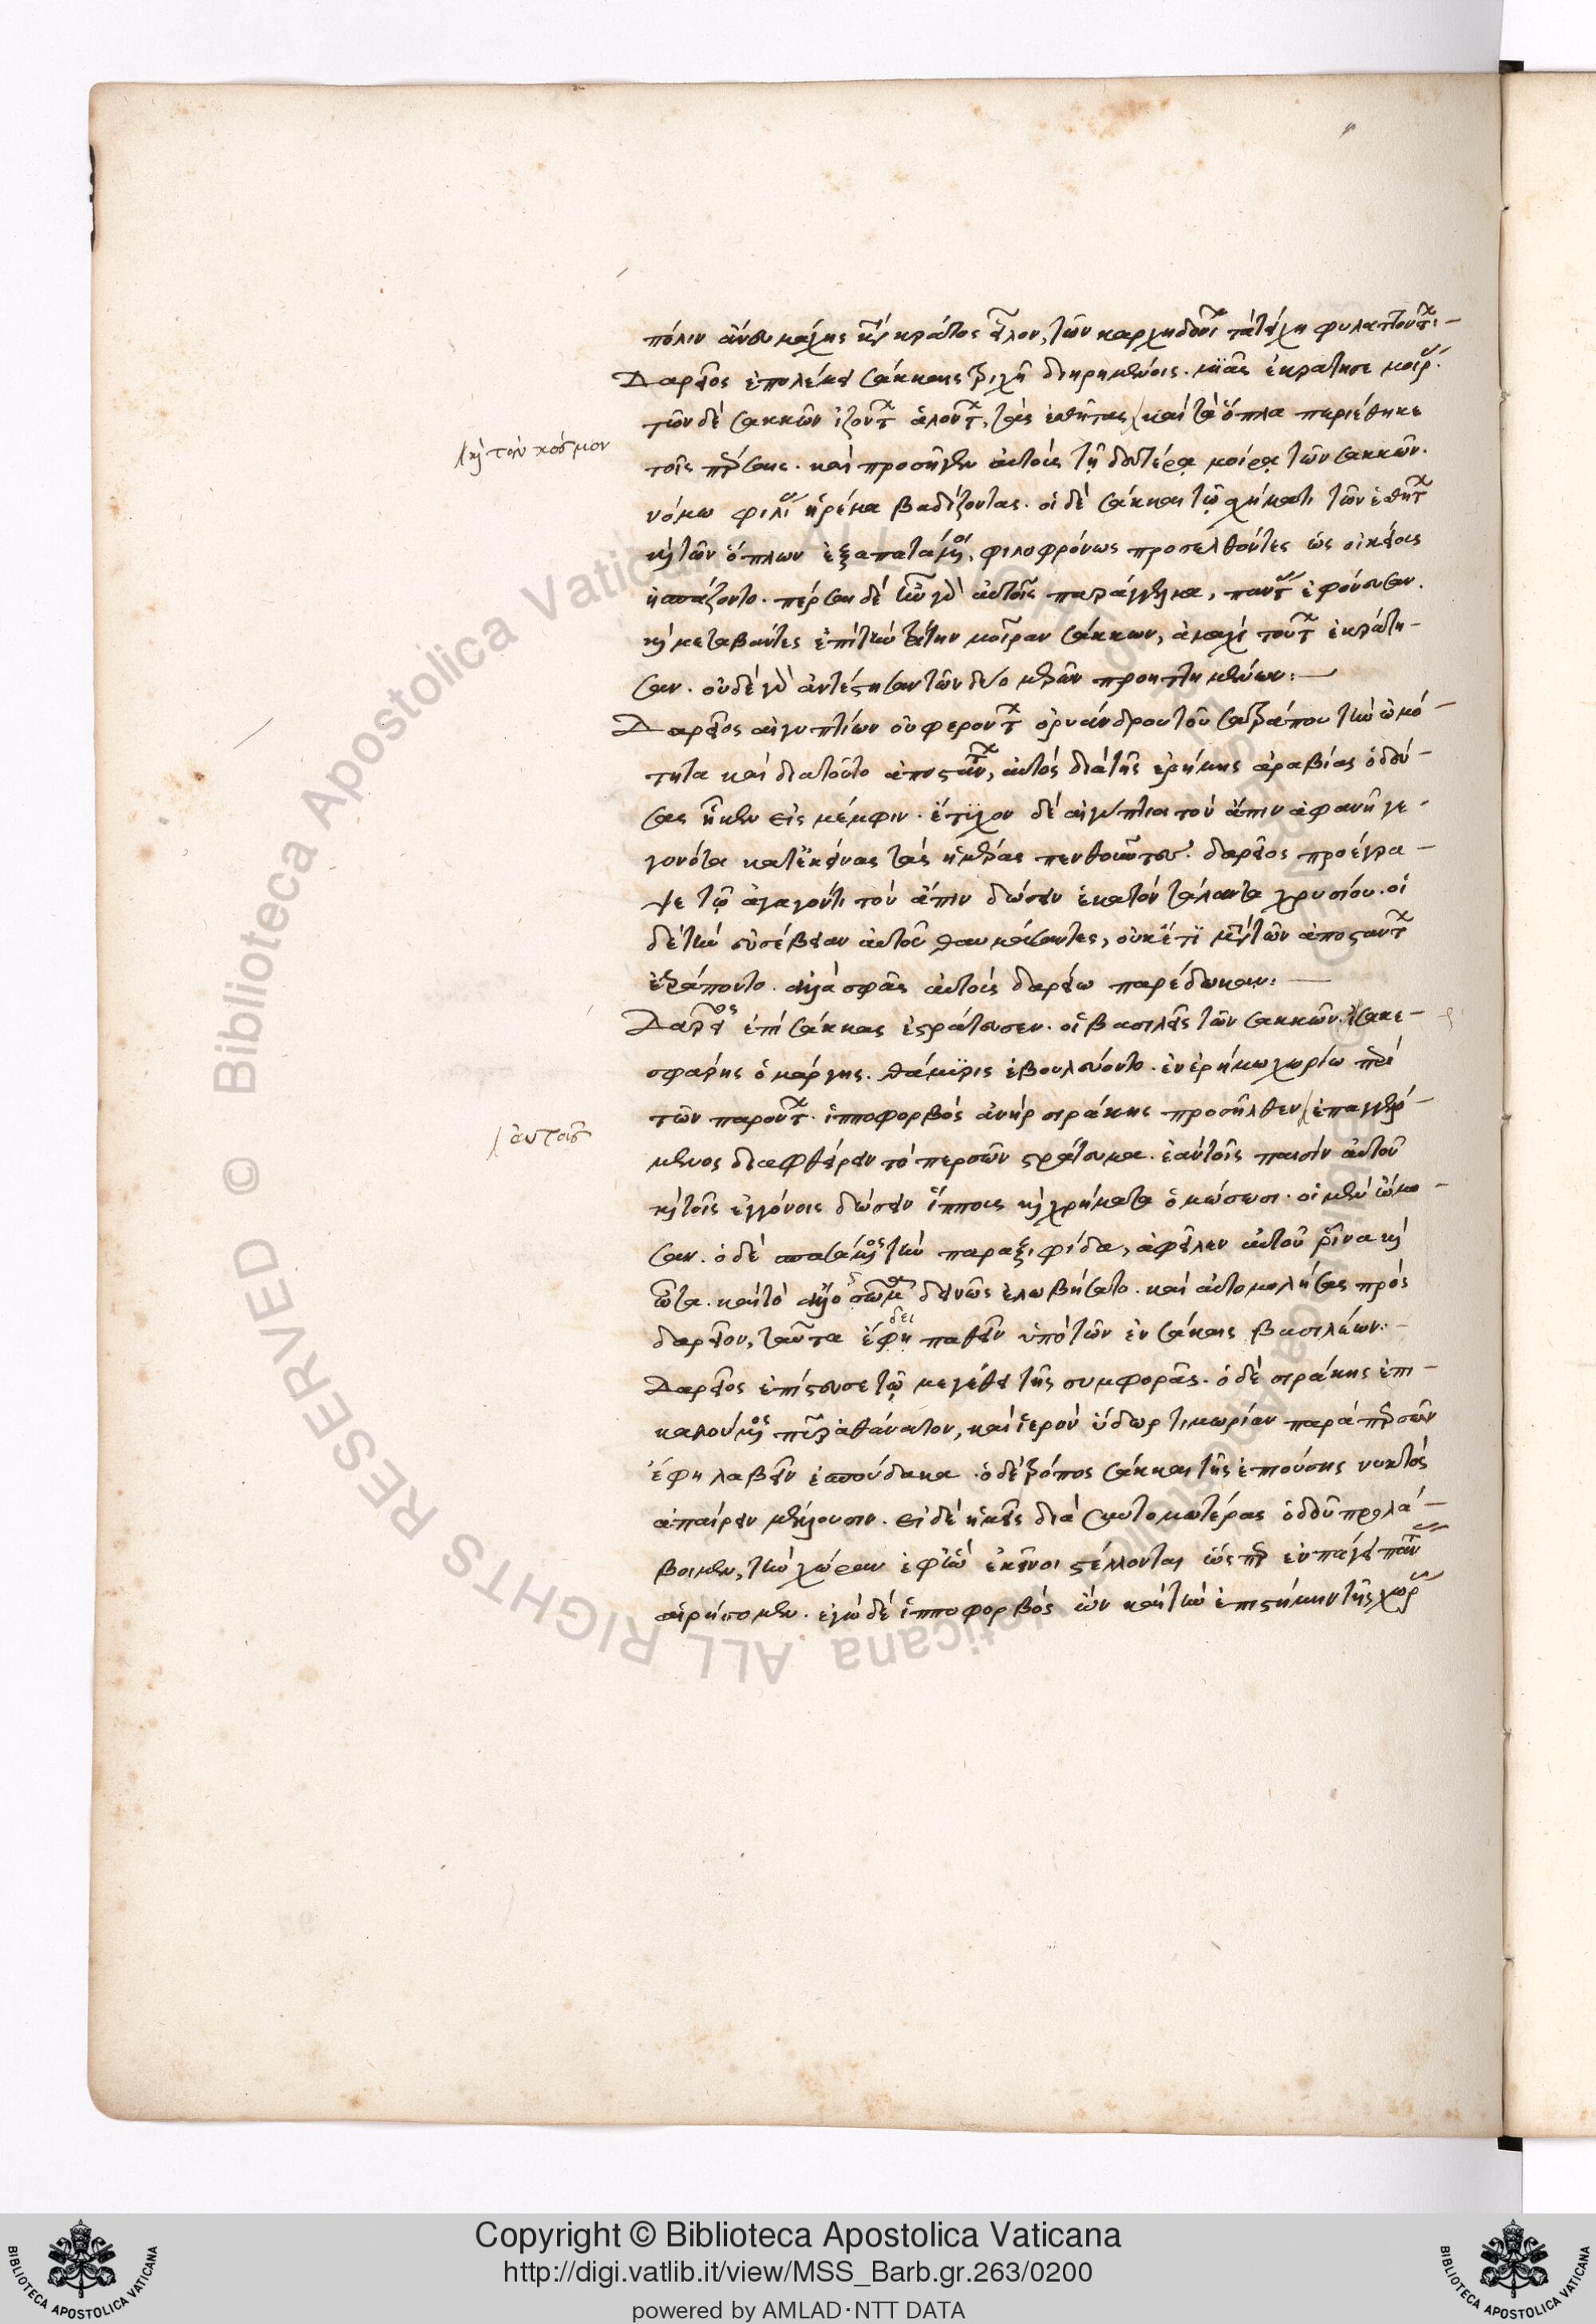 πόλιν ἄνευ μάχης κατὰ κράτος εἷλον, τῶν καρχηδονίων τὰ τείχη φυλαττόντων:–
Δαρεῖος ἐπολέμει σάκκαις τριχῆ διῃρημένοις. μιᾶς ἐκράτησε μοίρας.
τῶν δὲ σακκῶν ἁλόντων, τὰς ἐσθῆτας / καὶ τὰ ὅπλα περιέθηκε
/ καὶ τὸν κόσμον
τοῖς πέρσαις. καὶ προσῆγεν αὐτοὺς τῇ δευτέρᾳ μοίρᾳ τῶν σακκῶν.
νόμω φιλίας ἠρέμα βαδίζοντας. οἱ δὲ σάκκαι τῷ σχήματι τῶν ἐσθήτων
καὶ τῶν ὅπλων ἐξαπατώμενοι, φιλοφρόνως προσελθόντες ὡς οἰκείους
ἠσπάζοντο. πέρσαι δὲ ἦν γὰρ αὐτοῖς παράγγελμα, πάντας ἐφόνευσαν.
καὶ μεταβάντες ἐπὶ τὴν τρίτην μοῖραν σάκκων, ἀμαχὶ τούτων ἐκράτη–
σαν. οὐδὲ γὰρ ἀντέστησαν τῶν δύο μερῶν προηττημένων:—
Δαρεῖος αἰγυπτίων οὐ φερόντων ὀρυάνδρου τοῦ σατράπου τὴν ὠμό–
τητα καὶ διατοῦτο ἀποστάντων, αὐτὸς διὰ τῆς ἐρήμης ἀραβίας ὁδεύ–
σας ἧκεν εἰς μέμφιν. ἔτυχον δὲ αἰγύπτιοι τὸν ἄπιν ἀφανῆ γε–
γονότα κατ' ἐκείνας τὰς ἡμέρας πενθοῦντες. δαρεῖος προέγρα–
ψε τῷ ἀγαγόντι τὸν ἄπιν δώσειν ἑκατὸν τάλαντα χρυσίου. οἱ
δὲ τὴν εὐσέβειαν αὐτοῦ θαυμάσαντες, οὐκέτι μετὰ τῶν ἀποστάντων
ἐτράποντο. ἀλλὰ σφᾶς αὐτοὺς δαρείω παρέδωκαν:—
Δαρεῖος ἐπὶ σάκκας ἐστράτευσεν. οἱ βασιλεῖς τῶν σακκῶν. σακε–
σφάρης ὁμάργης. θάμυρις ἐβουλεύοντο. ἐν ἐρήμω χωρίω περὶ
τῶν παρόντων. ἱπποφορβὸς ἀνὴρ σιράκης προσῆλθεν / ἐπαγγειλά–
/ αὐτοῖς
μενος διαφθείρειν τὸ περσῶν στράτευμα. ἐὰν τοῖς παισὶν αὐτοῦ
καὶ τοῖς ἐγγόνοις δώσειν ἵππους καὶ χρήματα ὁμώσωσι. οἱ μὲν ὤμο–
σαν. ὁ δὲ σπασάμενος τὴν παραξιφίδα, ἀφεῖλεν αὐτοῦ ῥῖνα καὶ
ὦτα. καὶ τὸ ἄλλο σῶμα δεινῶς ἐλωβήσατο. καὶ αὐτομολήσας πρὸς
δαρεῖον, ταῦτα ἔφη παθεῖν ὑπὸ τῶν ἐν σάκαις βασιλέων:–
Δαρεῖος ἐπίστευσε τῷ μεγέθει τῆς συμφορᾶς. ὁ δὲ σιράκης ἐπι–
καλούμενος πῦρ ἀθάνατον, καὶ ἱερὸν ὕδωρ τιμωρίαν παρὰ περσῶν
ἔφη λαβεῖν ἐσπούδακα. ὁ δὲ τρόπος σάκκαι τῆς ἐπιούσης νυκτὸς
ἀπαίρειν μέλλουσιν. εἰ δὲ ἡμεῖς διὰ συντομωτέρας ὁδοῦ προλά–
βοιμεν, τὴν χώραν ἐφ' ἣν ἐκεῖνοι στέλλονται, ὥσπερ ἐν πάγει πάντας
αἱρήσομεν. ἐγὼ δὲ ἱπποφορβὸς ὢν καὶ τὴν ἐπιστήμην τῆς χώρας
Copyright © Biblioteca Apostolica Vaticana
http://digi.vatlib.it/view/MSS_Barb.gr.263/0200
powered by AMLAD·NTT DATA